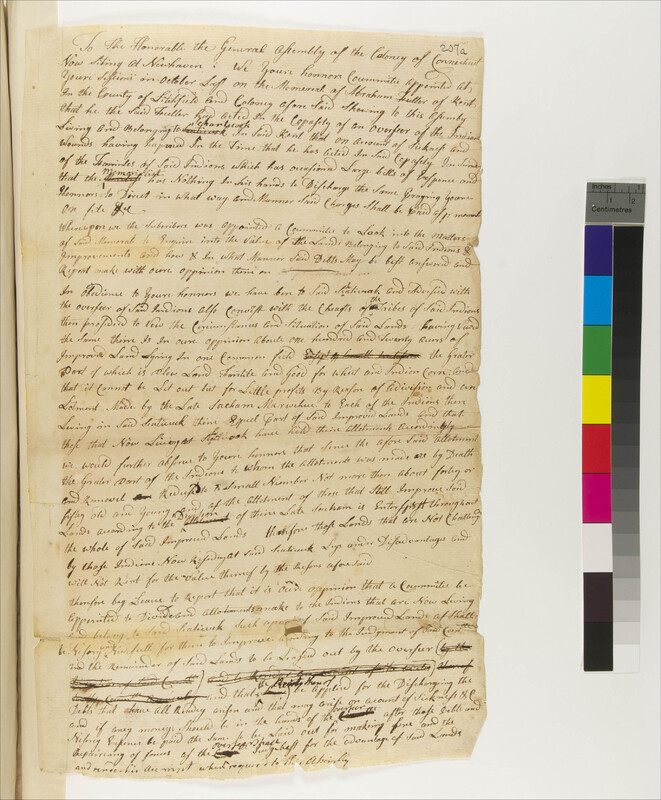 207a
To The Honorable the General Assembly of the Coloney of Connecticut
Now Siting At Newhaven: We Youre honnors Committe Appointed At
Youre Sessions in October Last on the Memorial of Abraham Fuller of Kent
In the County of Litchfield And Coloney afore Said Shewing to this Assembly
that he the Said Fuller had Acted In the Capasity of an Overseer of the Indians
Living And Belonging to Scaticook In Said Kent that on account of Sickness and
Wounds having hapned In the Time that he has Acted In Said Capasity In
of the Families of Said Indians which has occasioned Large Bills of Expence and
that the Memorialist has Nothing In his hands to Discharge the Same Praying Youre
Honnors to Direct in what way and Manner Said Charges Shall be Paid as
on file
Whereupon we the Subscribers was appointed a Committe to Look into the Matters
of Said Memorial to Enquire into the Value of the Lands Belonging to Said Indians &
Improvements and how & In what Manner Said Debts May be best answered and
Report make with oure oppinion thereon
In Obedience to Youre honnors we have ben to Said and Advised with
the overseer of Said Indians also Converst with the Cheaffs of the Tribes of Said Indians
then proseeded to View the Circumstances and Situation of Said Lands having Viewed
the Same there Is In oure oppinion Aboute one hundred and twenty acors of
Improved Land Lying In one Common field the Grater
Part of which is Plow Land Fertile and Good for Wheat and Indian Corn
that it Cannot be Let out but for Little profits By Reason of a Division and
Lotment Made by the Late Sachem Mawwehue to Each of the Indians then
Living in Said Scaticook there Equel Part of Said Improved Lands and that
those that Now Live at have held there Allotments Accordingly
we would further observe to Youre honnors that Since the afore Said Allotment
the Grater Part of the Indians to whom the Allotments was made are by Death
and Removel Reduced to a Small Number Not more than about forty or
fifty old and Young and of the Allotment of those that Still Improve Said
Lands according to the Division of there Late Sachem is Interspersed throughout
the whole of Said Improved Lands therefore those Lands that are Not Challenged
by those Indians Now Residing at Said Scaticook Lye under Disadvantages and
will Not Rent for the Value thereof by the Reasons afore Said
therefore beg Leave to Report that it is oure oppinion that a Committe be
Appointed to Divide and Allotments make to the Indians that are Now Living
and belong to Said Scaticook Such a part of Said Improved Lands as Shall
be Nesessary for them to Improve according to the Judgment of Said
and the Remainder of Said Lands to be Leased out by the overseer
and that be Applied for the Discharging the
Debts that have All Ready arisen and that may arise on account of Sickness &C
and if any money Should be in the hands of the overseer after those Debts and
Expence be paid the Same to be Laid out for making fence and the
Repairing of fence of the for the advantage of Said Lands
and when required to this Assembly